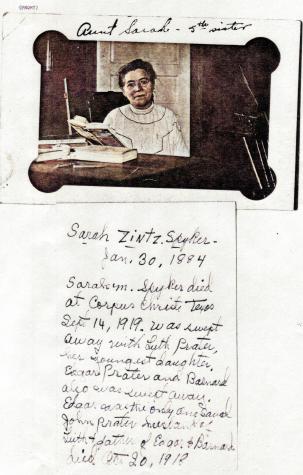 (FRONT)
Aunt Sarah - 5th sister
Sarah Zintz. Spyker-
Jan. 30, 1884
Sarah m. Spyker died
at Corpus Christi Texas
Sept 14, 1919. was swept
away with Ruth Prater,
her youngest daughter.
Edgar Prater and Barnard
also was swept away.
Edgar was the only one saved
John Prater husband of
Ruth & father of Edgar & Barnard
died Oct 20, 1918